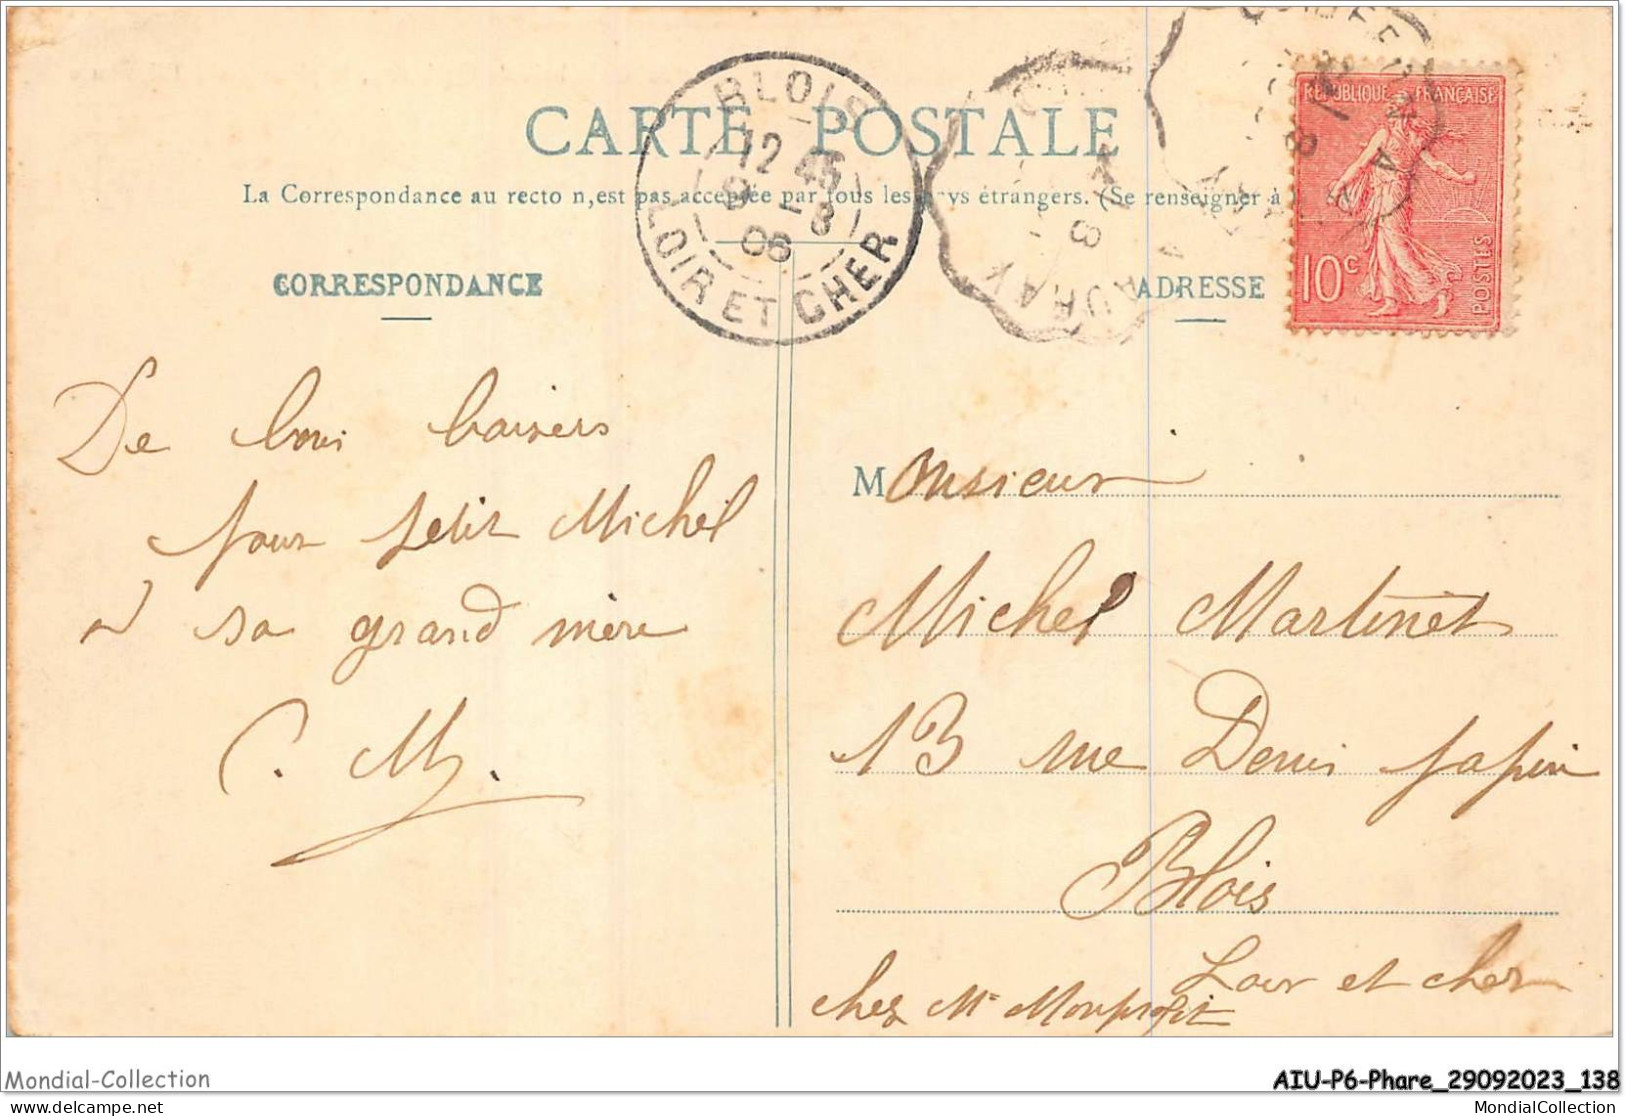 CARTE POSTALE
La Correspondance au recto n,est pas acceptée par tous les pays étrangers. (Se renseigner à
CORRESPONDANCE
ADRESSE
BLOIS
12 45
9 -8
06
LOIR ET CHER
AURAY
REPUBLIQUE FRANÇAISE
10 c
POSTES
De bons baisers
pour petit Michel
et sa grand mère
C. M.
Monsieur
Michel Martinet
13 rue Denis papin
Blois
Loir et cher
chez Mr Monprofit
Mondial-Collection
mondial-collection.delcampe.net
AIU-P6-Phare_29092023_138
MondialCollection